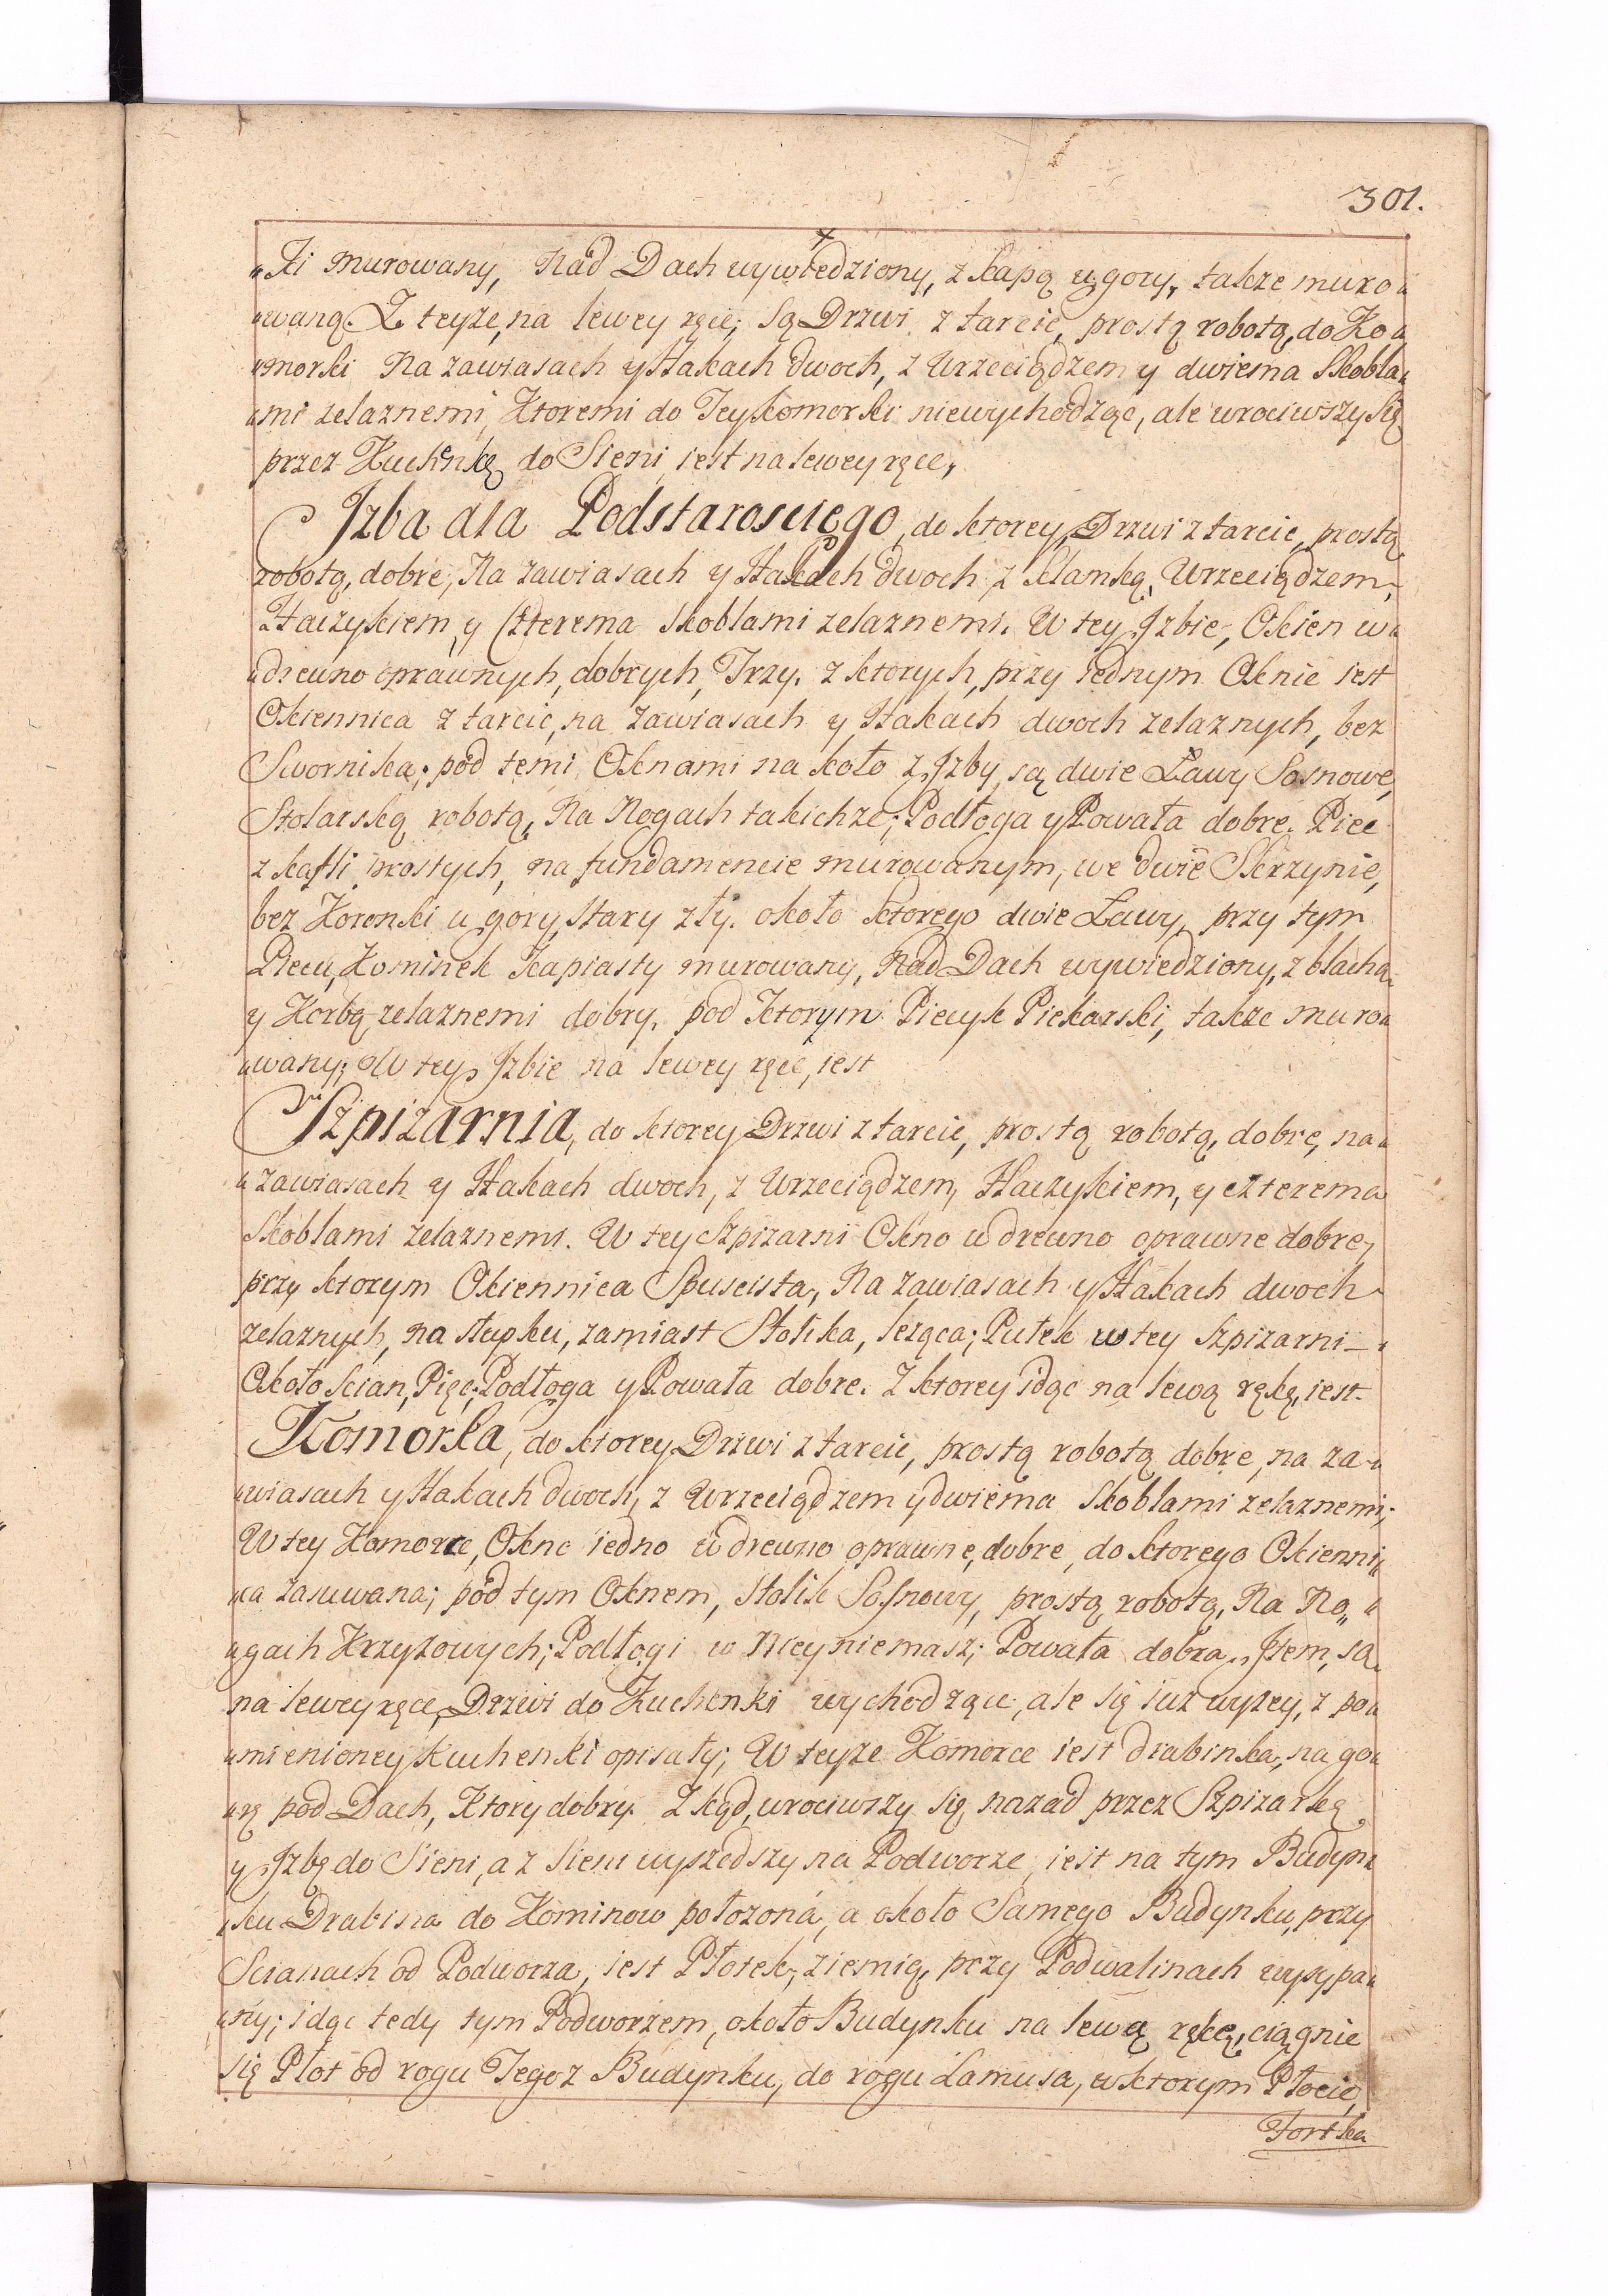 301.
„Ki murowany, Nad Dach wywiedziony, z kapą u gory, także muro„
„waną. Z teyże, na lewey ręce; Są Drzwi z tarcic, prostą robotą, do Ko„
„morki Na zawiasach y Hakach dwoch, z Wrzeciądzem y dwiema Skobla„
„mi żelaznemi, Ktoremi do Tey komorki niewychodząc, ale wrociwszy Się
przez Kuchenkę do Sieni, iest na lewey ręce,
Jzba dla Podstarosciego, do ktorey, Drzwi z tarcic, prostą
robotą, dobre, Na zawiasach y Hakach dwoch z Klamką, Wrzeciądzem,
Haczykiem y Czterema Skoblami zelaznemi. W tey Jzbie, Okien w„
„drewno oprawnych, dobrych, Trzy. z ktorych, przy iednym Oknie iest
Okiennica z tarcic, na zawiasach y Hakach dwoch zelaznych, bez
Swornika; pod temi Oknami na koło z Jzby, są dwie Ławy Sosnowe,
Stolarską robotą, Na Nogach takichze; Podłoga y Powała dobre. Piec
z kafli prostych, na fundamencie murowanym, we dwie Skrzynie,
bez Koronki u gory, stary zły. około ktorego dwie Ławy, przy tym
Piecu, Kominek Kapiasty murowany, Nad Dach wywiedziony, z blachą
y Korbą zelaznemi dobry. pod Ktorym Piecyk Piekarski, także muro„
„wany; W tey Jzbie na lewey ręce, iest
Szpizarnia, do ktorey Drzwi z tarcic, prostą robotą, dobre, na„
„zawiasach y Hakach dwoch, z Wrzeciądzem, Haczykiem, y czterema
Skoblami zelaznemi. W tey Szpizarni Okno w drewno oprawne dobre,
przy ktorym Okiennica Spuscista, Na zawiasach y Hakach dwoch
zelaznych, na słupku, zamiast Stolika, leząca; Pułek w tey Szpizarni
Około Scian, Pięc; Podłoga y Powała dobre. Z ktorey idąc na lewą rękę, iest
Komorka, do ktorey Drzwi z tarcic, prostą robotą dobre, na za„
„wiasach y Hakach dwoch, z Wrzeciądzem y dwiema Skoblami zelaznemi;
W tey Komorce, Okno iedno w drewno oprawne, dobre, do ktorego Okienni„
„ca zasuwana; pod tym Oknem, Stolik Sosnowy, prostą robotą, Na No„
„gach Krzyżowych; Podłogi w Niey niemasz; Powała dobra. Jtem, są
na lewey ręce, Drzwi do Kuchenki wychodząc, ale się iuz wyżey, z po„
„mienioney Kuchenki opisały; W teyże Komorce iest drabinka, na go„
„rę pod Dach, Ktory dobry. Zkąd, wrociwszy się nazad przez Szpizarkę
y Jzbę do Sieni, a z Sieni wyszedszy na Podworze, iest na tym Budyn„
„ku Drabina do Kominow położona, a około Samego Budynku, przy
Scianach od Podworza, iest Płotek, ziemią, przy Podwalinach wysypa„
„ny; idąc tedy tym Podworzem, około Budynku na lewą rękę, ciągnie
się Płot od rogu Tegoz Budynku, do rogu Lamusa, w ktorym Płocie,
Fortka